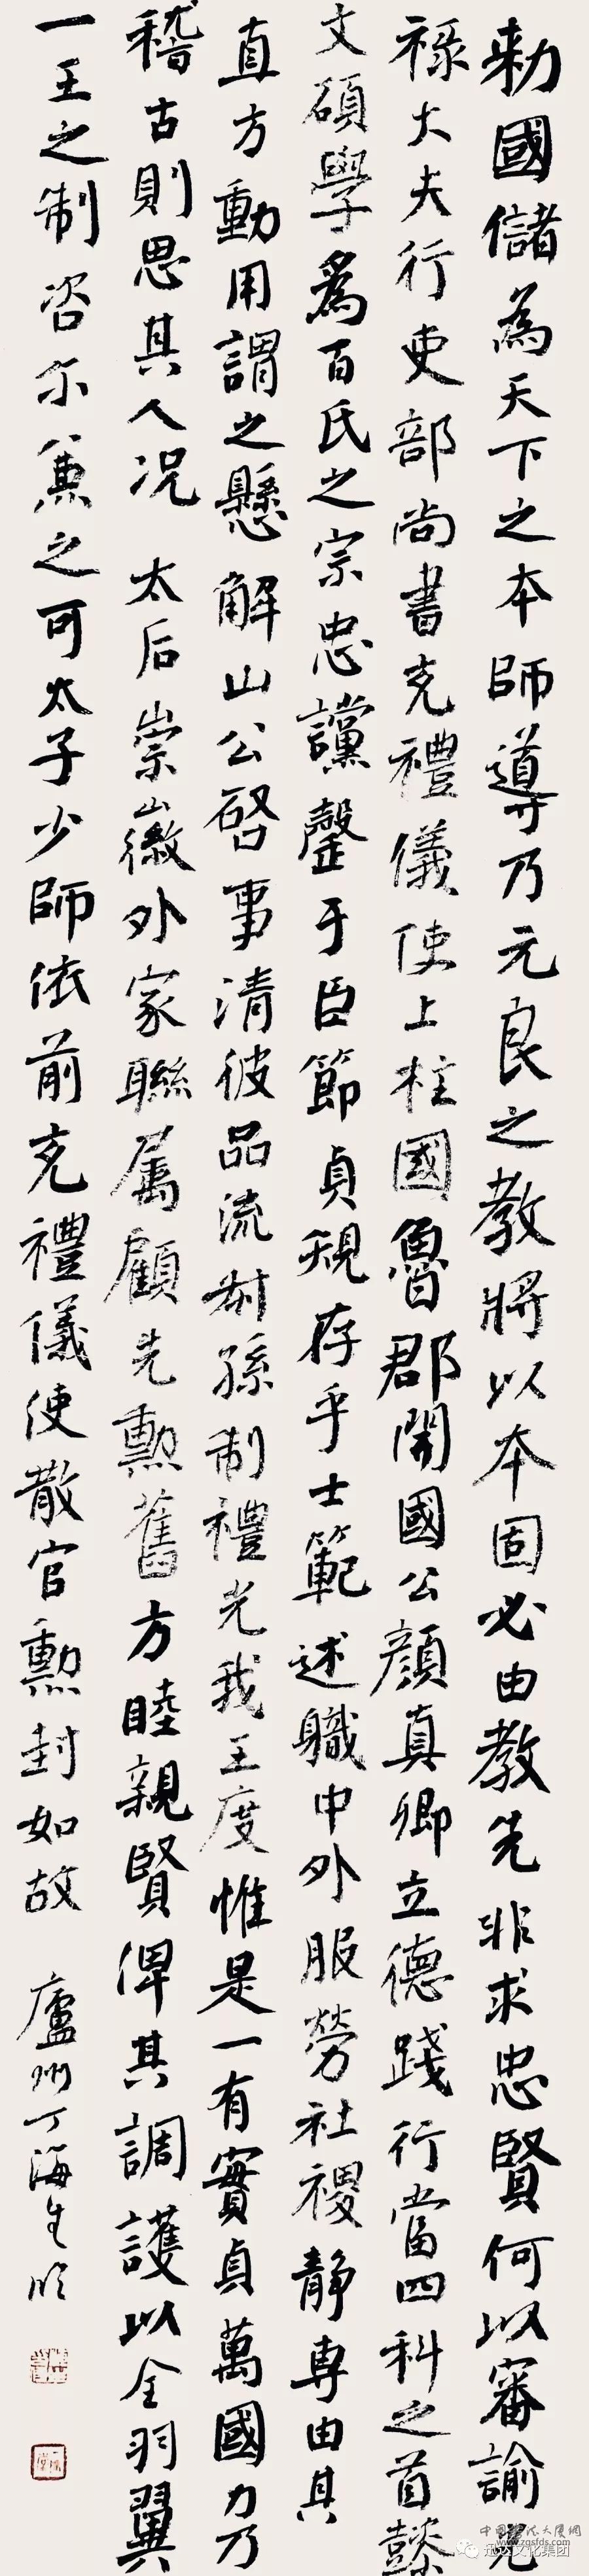 勅國儲為天下之本師導乃元良之教將以本固必由教先非求忠賢何以審諭光
祿大夫行吏部尚書充禮儀使上柱國魯郡開國公顏真卿立德踐行當四科之首懿
文碩學爲百氏之宗忠讜罄于臣節貞規存乎士範述職中外服勞社稷静專由其
直方動用謂之懸解山公啓事清彼品流叔孫制禮光我王度惟是一有實貞萬國力乃
稽古則思其人况 太后崇徽外家聯屬顧先勳舊方睦親賢俾其調護以全羽翼
一王之制咨尔兼之可太子少師依前充禮儀使散官勳封如故 廬州丁海生
中国书法大厦網
www.zgsfds.com
文化集团